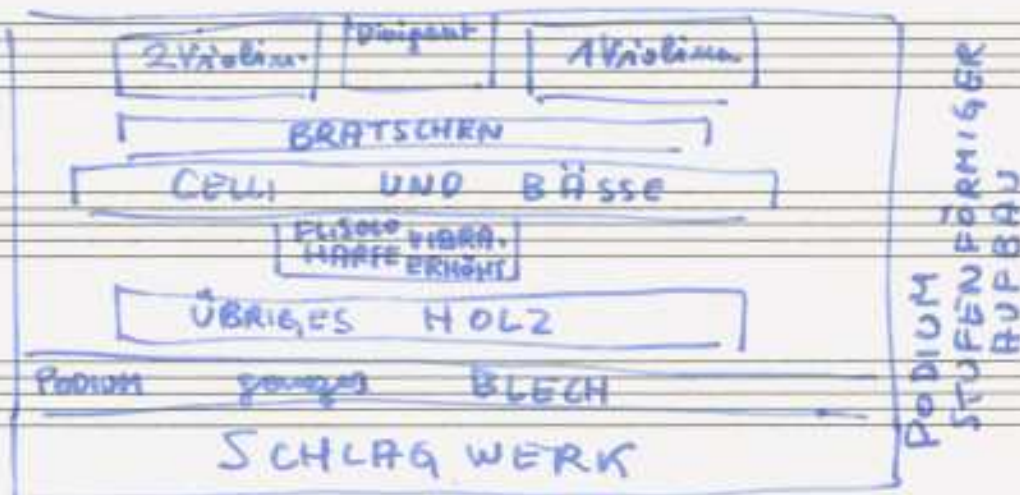 2 Violin. Dirigent 1 Violinen
BRATSCHEN
CELLI UND BÄSSE
FL.SOLO VIBRA.
HARFE ERHÖHT
ÜBRIGES HOLZ
PODIUM ganzes BLECH
SCHLAGWERK
PODIUM
STUFENFÖRMIGER
AUFBAU